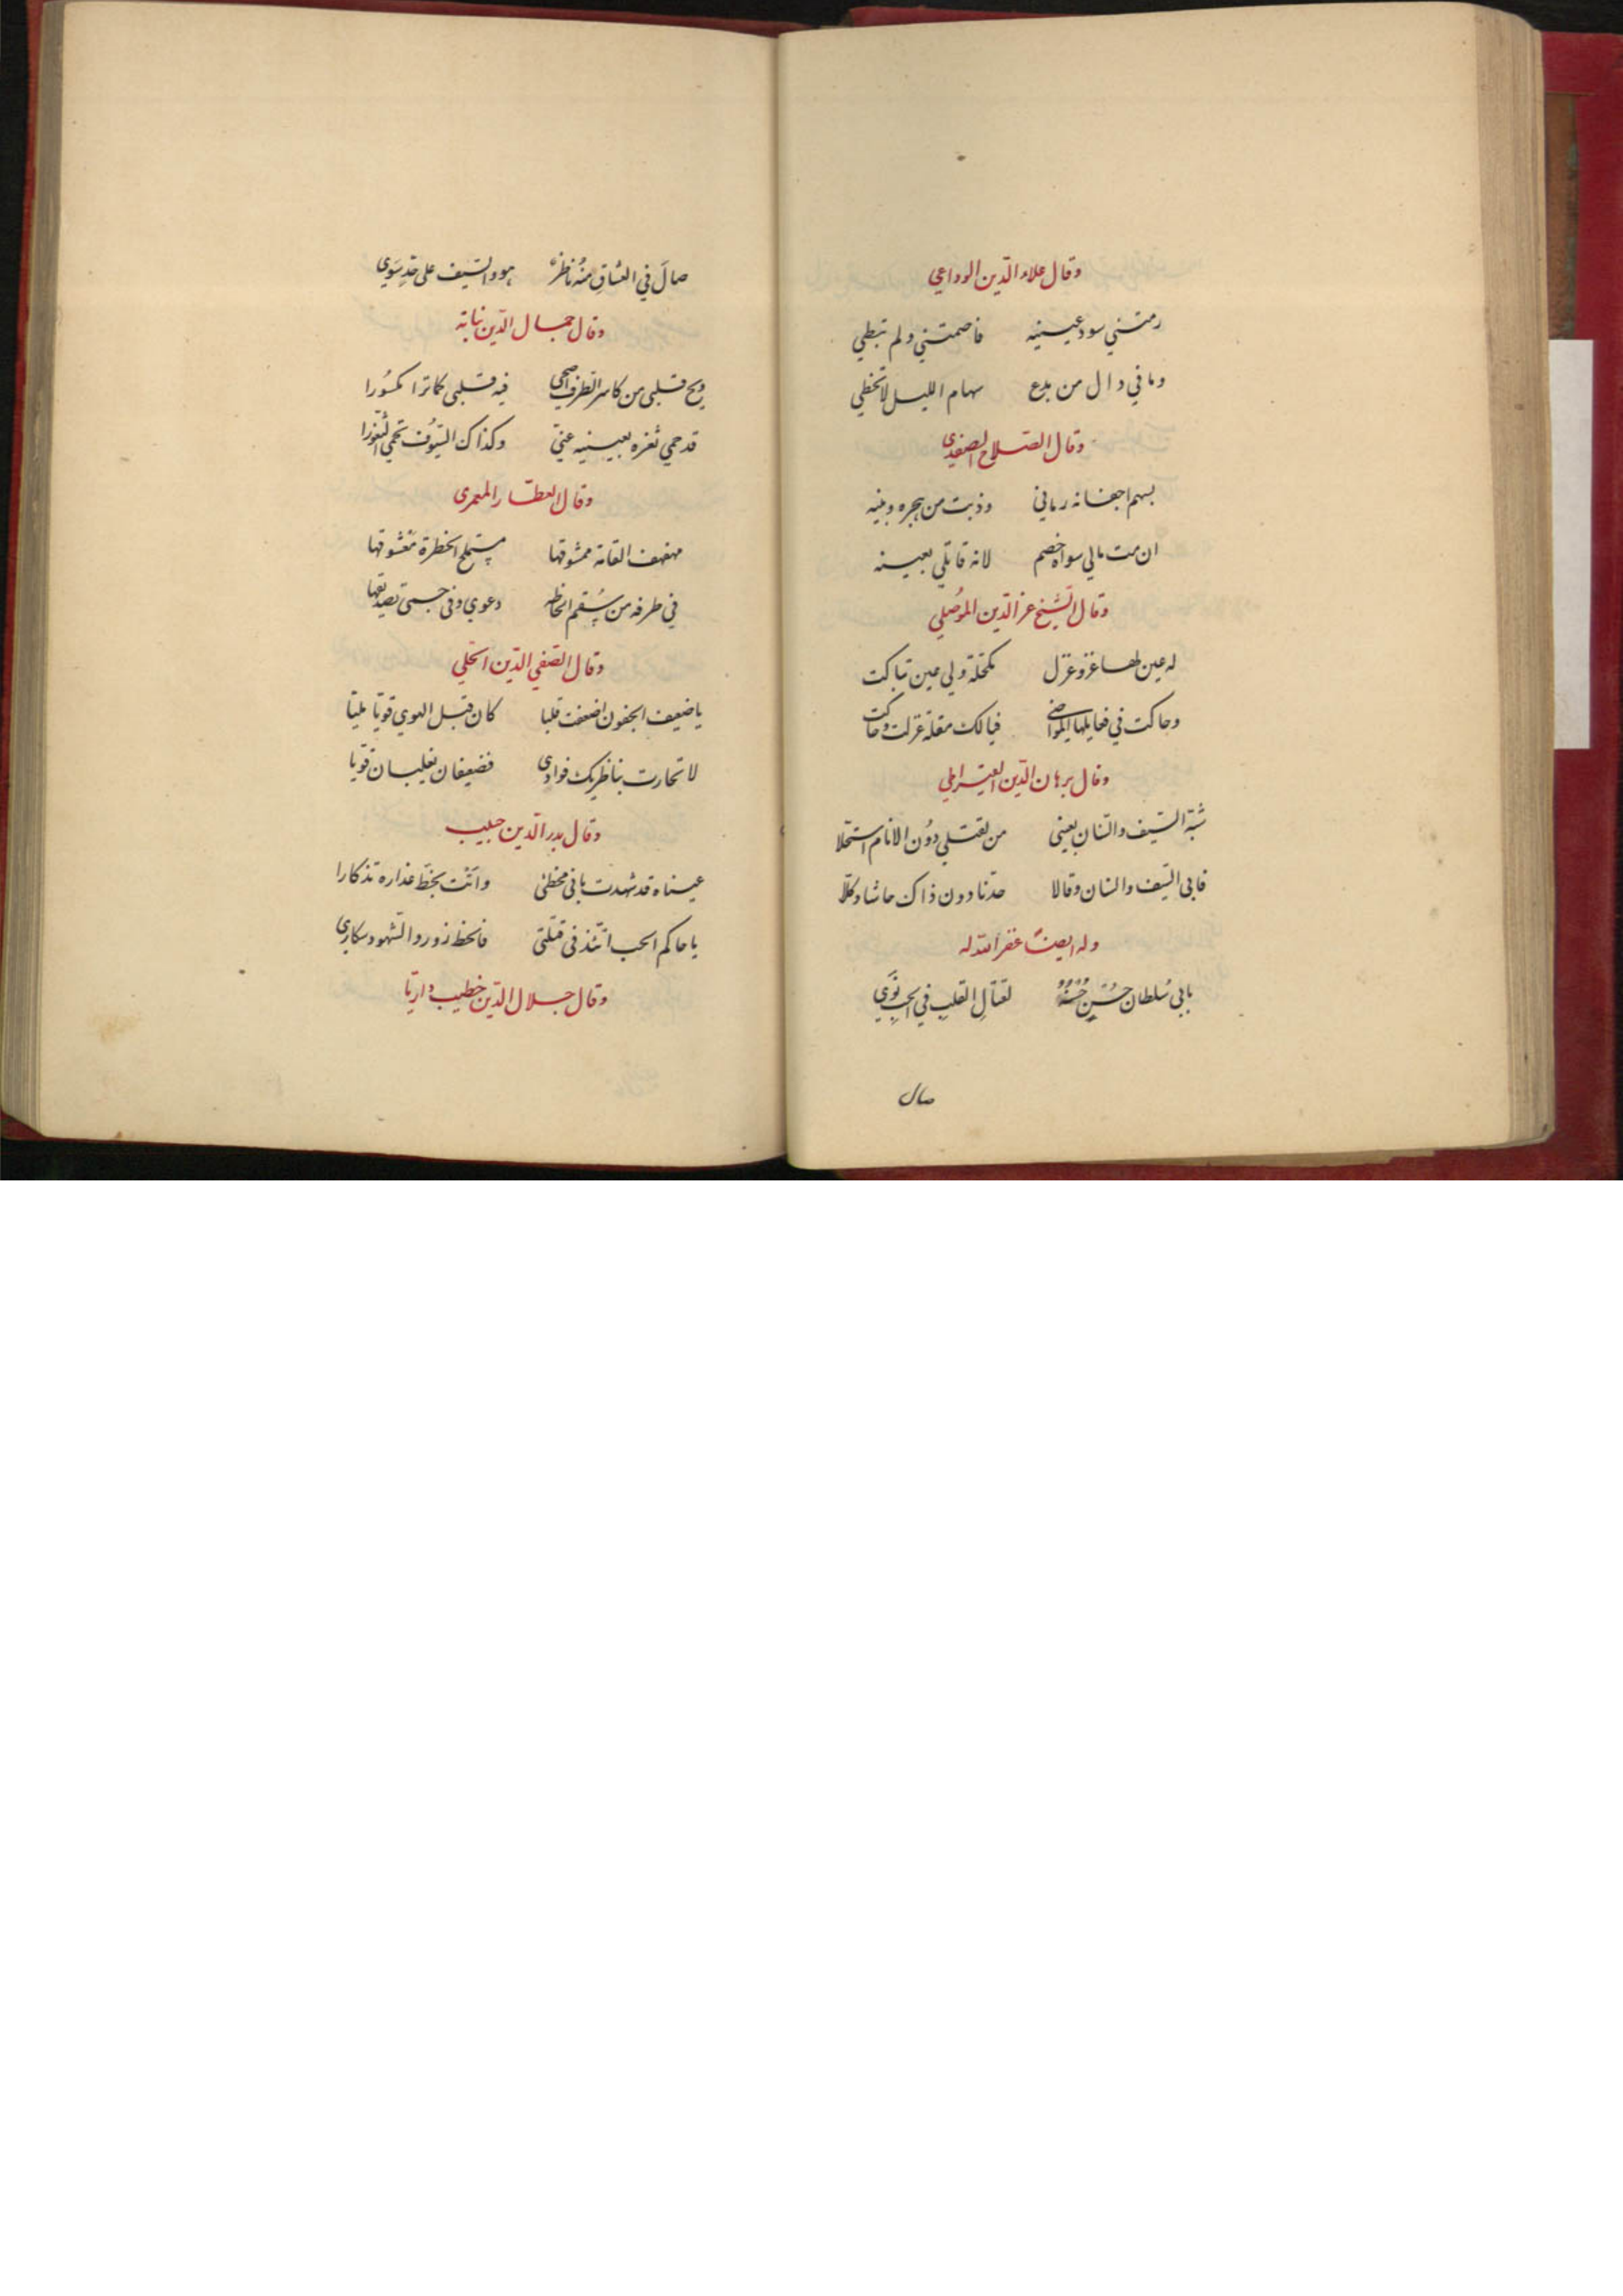 وقال علاء الدّين الوداعي
رمتني سود عينيه فاصمتني ولم تبطي
وما في ذال من بدع سهام الليل لا تخطي
وقال الصّلاح الصفدي
بسهم اجفانه رماني وذبت من هجره وبينه
ان مت مالي سواه خصم لانه قاتلي بعينه
وقال الشّيخ عز الدّين الموصُلي
له عين لها غزو غزل مكحّلة ولي عين تباكت
وحاكت في فعايلها المواضي فيالك مقلة غزلت وحاكت
وقال برهان الدّين القيراطي
شبّه السّيف والسّنان بعيني من لقتلي دوُن الانام استحلّا
فابي السّيف والسنان وقالا حدّنا دون ذاك حاشا وكلّا
وله ايضًا غفر الله له
بابي سُلطان حُسْنٍ حُسْنُهُ لقتالِ القلبِ في الحبِ نَوَي
صال
صالَ في العشاقِ منهُ ناظرٌ هو والسّيف على حدٍ سَوي
وقال جمال الدّين نباته
ويح قلبي من كاسر الطرف اضحى فيه قلبي كما ترا مكسُورا
قد حمي ثغره بعينيه عنيّ وكذاك السّيُوف تحمي الثّغورا
وقال العطّار المعمرى
مهفهف القامة ممشوقها مستملح الخطرة معشوقها
في طرفه من سُقم الحاظه دعوي وفى جسمى تصديقها
وقال الصّفي الدّين الحلي
يا ضعيف الجفون اضعفت قلبا كان قبل الهوي قويّا مليّا
لا تحارب بناظريك فوادى فضعيفان يغلبان قويّا
وقال بدر الدّين حبيب
عيناه قد شهدت بانى مخطئ واتت بخطّ عذاره تذكارا
يا حاكم الحب اتّئد فى قتلتى فالخط زور والشّهود سكارى
وقال جلال الدّين خطيب داريّا